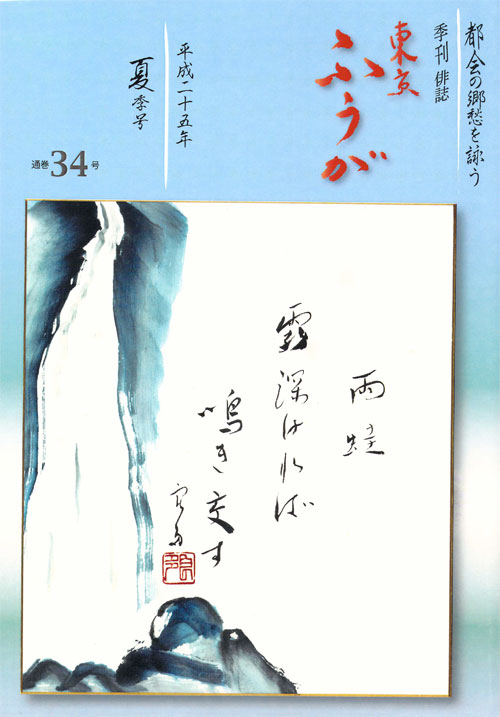 都会の郷愁を詠う
季刊 俳誌
東京
ふうが
平成二十五年
夏季号
通巻34号
雨蛙
霧深ければ
鳴き交す